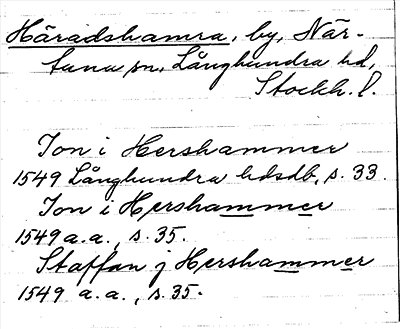 Häradshamra, by, När-
tuna sn, Långhundra hd,
Stockh. l.
Jon i Hershammer
1549 Långhundra hdsdb, s. 33.
Jon i Hershammer
1549 a.a., s. 35.
Staffan j Hershammer
1549 a.a., s. 35.